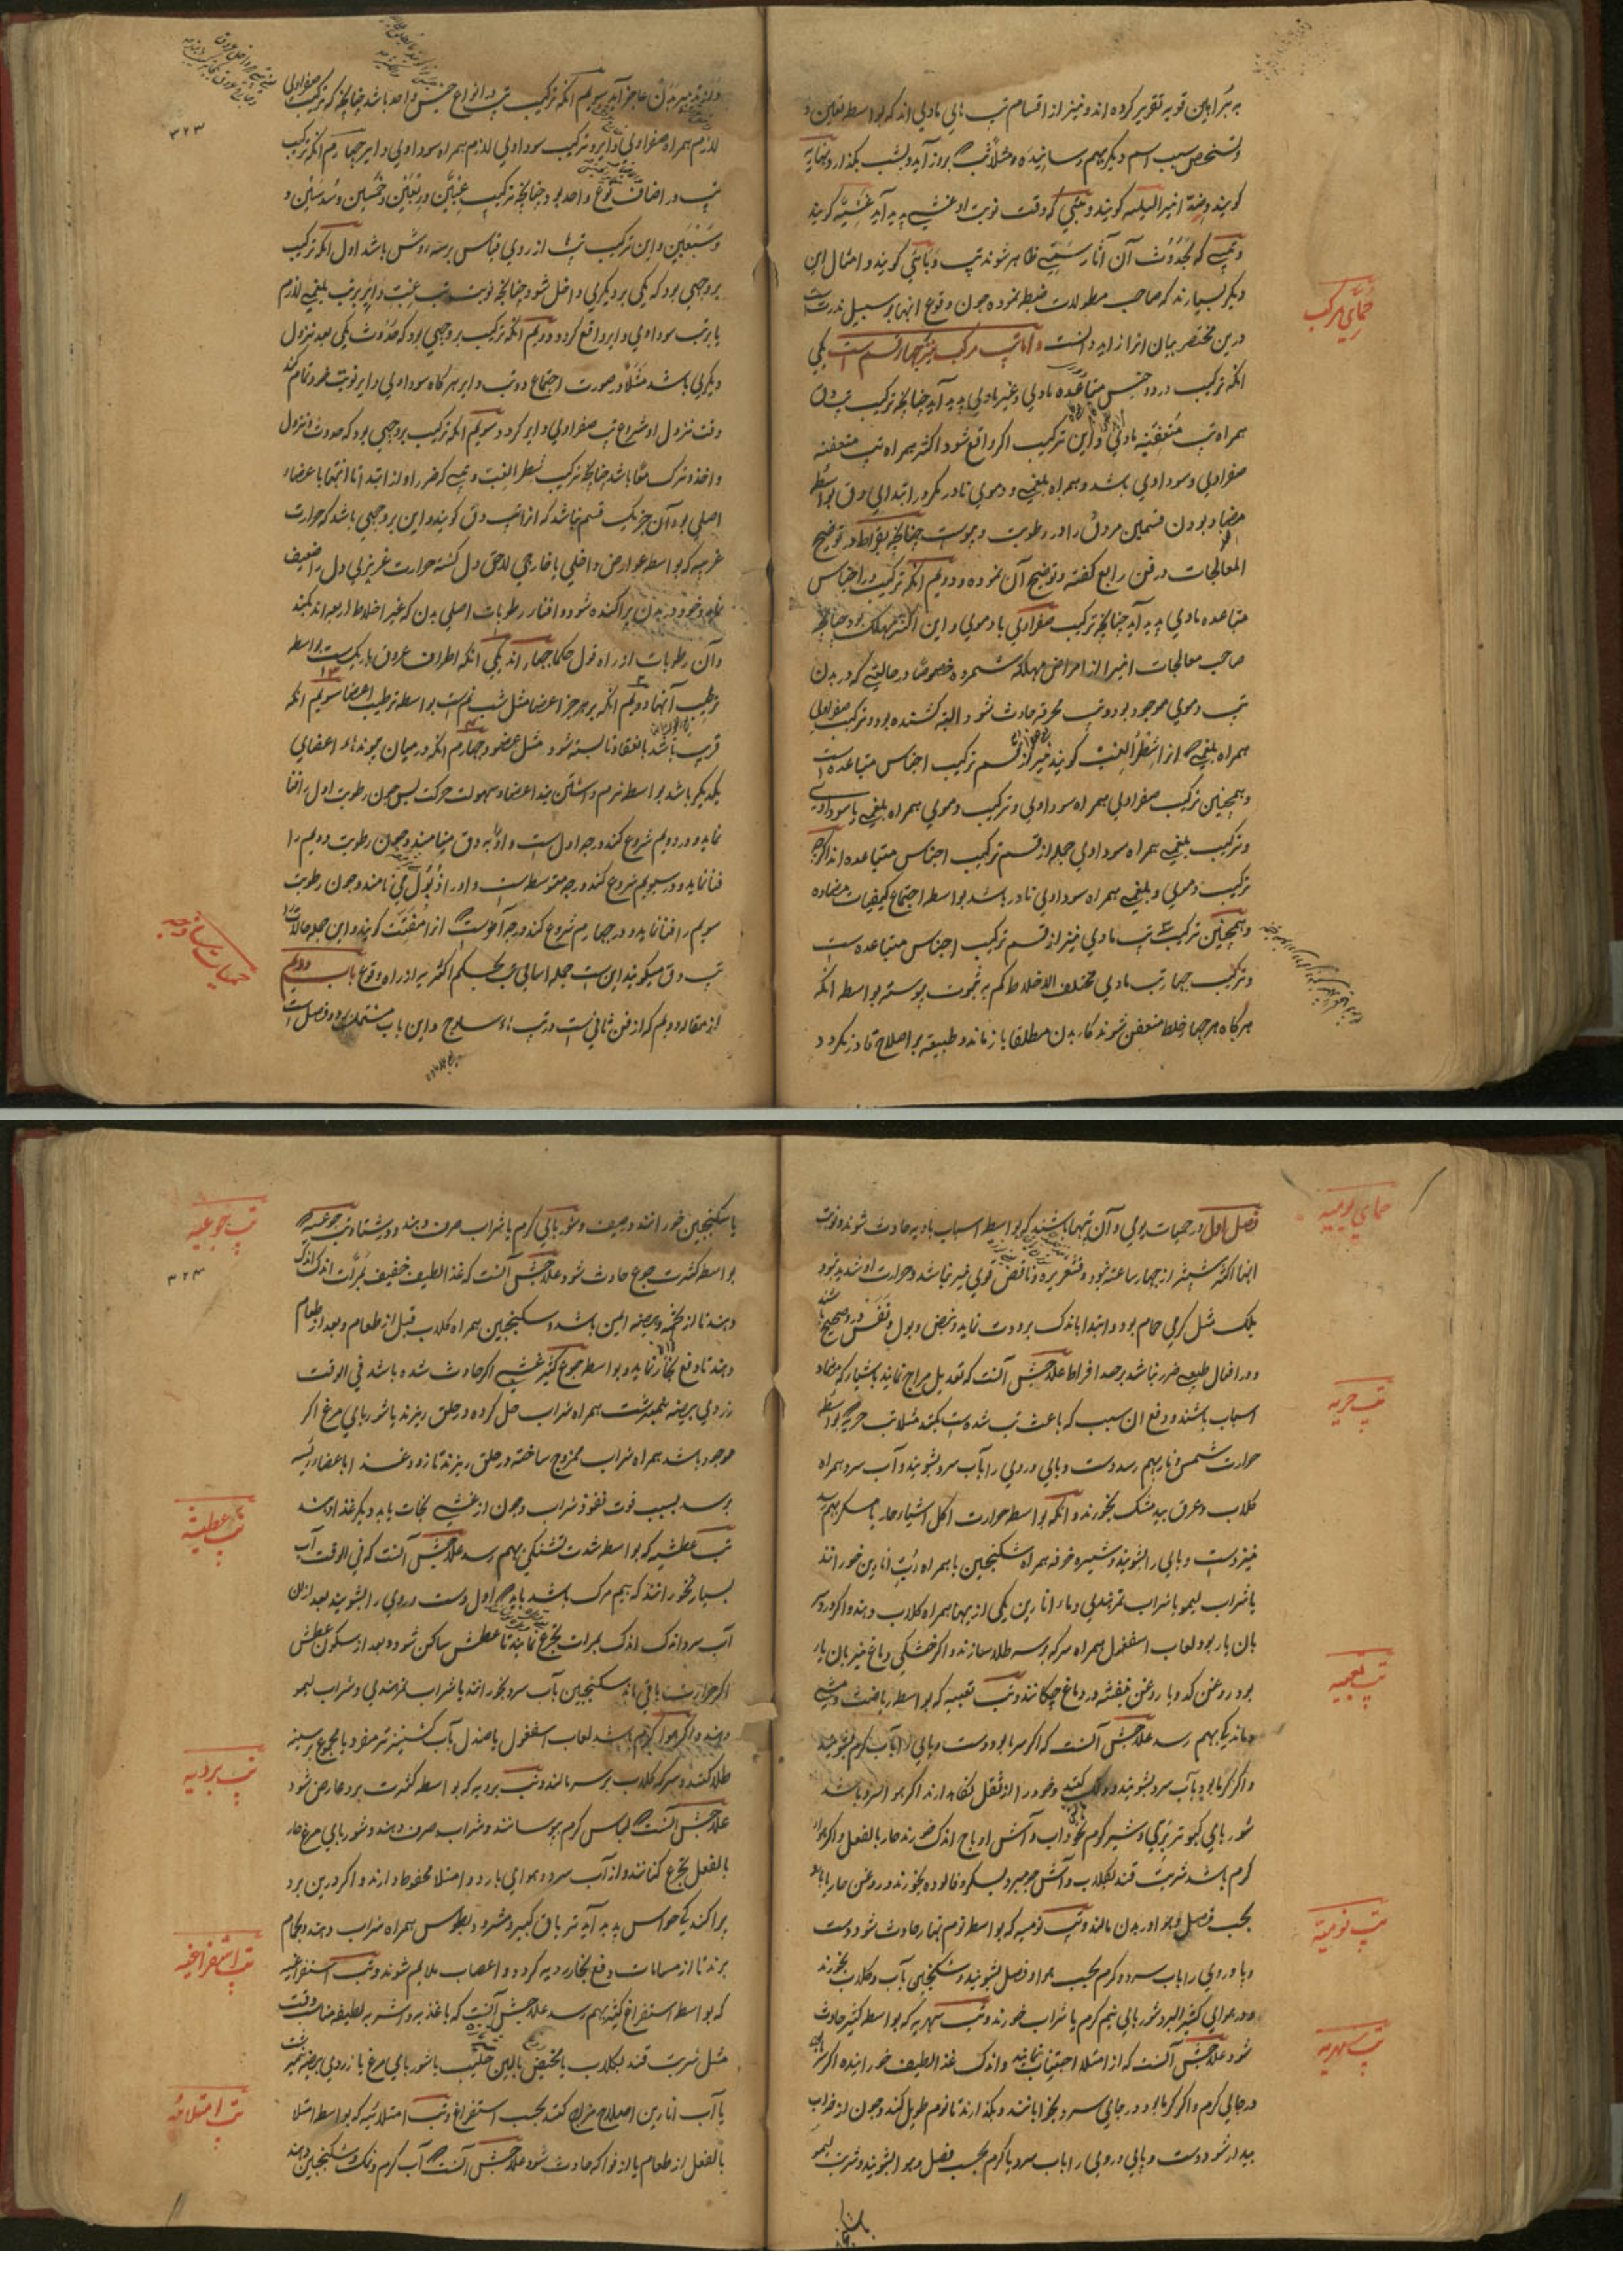 به براهین قویه تقریر کرده اند و نیز از اقسام تب های مادی اند که بواسطه تعین و
وتشخص سبب اسم دیگر بهم رسانیده مثلا تب که بروز آید و بشب بگذارد نهاریه
گویند و اخیر اللیلیه گویند و تبی که وقت نوبت او غشی پدید آید غشییه گویند
وتبی که بحدوث آن آثار سمیتی ظاهر شوند تپ وبائی گویند و امثال این
دیگر بسیارند که صاحب مطولات ضبط نموده چون وقوع انها بر سبیل ندرت است
درین مختصر بیان انرا زاید دانست و اما تپ مرکب نیز چهار قسم است یکی
انکه ترکیب در دو جنس متباعده مادی و غیر مادی پدید آید چنانچه ترکیب تب دق
حمای مرکب
همراه تب متعفنه مادی و این ترکیب اگر واقع شود اکثر همراه تب متعفنه
صفراوی و سوداوی باشد و همراه بلغمی و دموی نادر مگر در ابتدای دق بواسطه
مضاد بودن قسمین مر دق را در رطوبت و یبوست چنانچه بقراط در توضیح
المعالجات در فن رابع گفته و توضیح آن نموده و دویم انکه ترکیب در اجناس
متباعده مادی پدید آید چنانچه ترکیب صفراوی با دموی و این اکثر مهلک بود چنانچه
صاحب معالجات انیرا از امراض مهلکه شمرده خصوصا در حالتی که در بدن
تب دموی موجود بود و تب محرقه حادث شود البته کشنده بود و ترکیب صفراوی
همراه بلغمی که انرا شطر الغب گویند نیز از قسم ترکیب اجناس متباعده است
و همچنین ترکیب صفراوی همراه سوداوی و ترکیب دموی همراه بلغمی یا سوداوی
و ترکیب بلغمی همراه سوداوی جمله از قسم ترکیب اجناس متباعده اند اگرچه
ترکیب دموی و بلغمی همراه سوداوی نادر باشد بواسطه اجتماع کیفیات متضاده
و همچنین ترکیب سه تپ مادی نیز از قسم ترکیب اجناس متباعده است
و ترکیب چهار تب مادی مختلف الاخلاط کم به ثبوت پیوسته بواسطه انکه
هرگاه هر چهار خلط متعفن شوند کار بدن مطلقا باز ماند و طبیعت بر اصلاح قادر نگردد
و از تدبیر بدن عاجز آید سویم انکه ترکیب تب در انواع جنس واحد باشد چنانچه که ترکیب صفراوی
۳۲۳
لازم همراه صفراوی دایر و ترکیب سوداوی لازم همراه سوداوی دایر چهارم انکه ترکیب
تپ در اصناف نوع واحد بود چنانچه ترکیب غبین و ربعین و خمسین و سدسین و
و سبعین و این ترکیب تبها از روی قیاس بر سه روش باشد اول انکه ترکیب
بر وجهی بود که یکی بر دیگری داخل شود چنانچه نوبت تب غب دایر بر تب بلغمی لازم
یا بر تب سوداوی دایر واقع گردد و دویم انکه ترکیب بر وجهی بود که حدوث یکی بعد نزول
دیگری باشد مثلا در صورت اجتماع دو تب دایر هرگاه سوداوی دایر نوبت خود تمام کند
وقت نزول او شروع تب صفراوی دایر گردد و سویم انکه ترکیب بر وجهی بود که حدوث و نزول
و اخذ و ترک معا باشد چنانچه ترکیب شطر الغب و تبی که ضرر او از ابتدا تا انتها باعضاء
اصلی بود آن جز یک قسم نباشد که انرا تب دق گویند و این بر وجهی باشد که حرارت
غریبه که بواسطه عوارض داخلی یا خارجی لاحق دل گشته حرارت غریزی دل را ضعیف
نماید و خود در بدن پراکنده شود و افنار رطوبات اصلی بدن که غیر اخلاط اربعه اند کند
وآن رطوبات از راه قول حکما چهار اند یکی انکه اطراف عروق باریک است بواسطه
ترطیب آنها دویم انکه بر هر جز اعضا مثل شبنم است بواسطه ترطیب اعضا سویم انکه
قریب باشد بانعقاد تا بسته شود مثل عضو و چهارم انکه در میان پیوندهاء اعضای
یکدیگر باشد بواسطه نرم داشتن بند اعضا و سهولت حرکت پس چون رطوبت اول را فنا
نماید و در دویم شروع کند درجه اول است و او را تب دق مینامند و چون رطوبت دویم را
فنا نماید و در سیویم شروع کند درجه متوسط است و او را ذبول می نامند و چون رطوبت
سویم را فنا نماید و در چهارم شروع کند درجه آخر است انرا مفتت گویند و این جمله حالات را
حمیات ساذجه
تپ دق میگویند این است جمله اسامی تب بحکم اکثریه از راه وقوع باب دویم
از مقاله دویم که از فن ثانی است در تب هاء ساذج و این باب مشتمل بر دو فصل است
حمای یومیه
فصل اول در حمیات یومی و آن تبها باشند که بواسطه اسباب بادیه حادث شوند و نوبت
انها اکثر بیشتر از چهار ساعته نبود و قشعریره و نافض قوی نیز نباشد و حرارت او شدید نبود
بلکه مثل گرمی حمام بود و ابتدا باندک برودت نماید و نبض و بول و نفس در وی صحیح باشند
و در افعال طبیعی ضرر نباشد بر حد افراط علاجش آنست که تعدیل مزاج نمایند باشیاء که مضاد
تپ حریه
اسباب باشند و دفع ان سبب که باعث تب شده است بکنند مثلا تب حریه که بواسطه
حرارت شمس و نار بهم رسد دست و پای و روی را بآب سرد بشویند و آب سرد همراه
گلاب و عرق بیدمشک بخورند و انکه بواسطه حرارت اکل اشیاء حار یا مسکر بهم رسد
نیز دست و پای را بشویند و شیره خرفه همراه سکنجبین یا همراه رب انارین خورانند
یا شراب لیمو یا شراب تمرهندی و ماء انارین یکی از ینها همراه گلاب دهند و اگر درد سر
بان یار بود لعاب اسفغول همراه سرکه بر سر طلا سازند و اگر خشکی دماغ نیز بان یار
تپ تعبیه
بود روغن کدو یا روغن بنفشه در دماغ چکانند و تب تعبیه که بواسطه ریاضت و مشی
و ماندگی بهم رسد علاجش آنست که اگر سرما بود دست و پای را بآب گرم بشویند
و اگر گرما بود بآب سرد بشویند و دلک کنند و خود را از ثقل نگاه دارند اگر هوا سرد باشد
شوربای کبوتر بری و شیر گرم نخود آب و آش اوماج اندک خورند حار بالفعل و اگر هوا
گرم باشد شربت قند بگلاب و آش جو مبرد بسکر و فالوده بخورند و روغن حار یا بارد
تپ نومیه
بحسب فصل و هوا در بدن مالند و تپ نومیه که بواسطه نوم نهار حادث شود دست
و پا و روی را باب سرد و گرم بحسب هوا و فصل بشویند و سکنجبین بآب و گلاب بخورند
و در هوای کثیر البرد شوربای نیم گرم یا شراب خورند و تب سهریه که بواسطه کثیر حادث
تپ سهریه
شود علاجش آنست که از امتلا اجتناب نمایند و اندک غذا لطیف خورانیده اگر سرما بود
در جای گرم و اگر گرما بود در جای سرد بخوابانند و بگذارند تا نوم طویل کند و چون از خواب
بیدار شود دست و پای و روی را باب سرد یا گرم بحسب فصل و هوا بشویند و شربت لیمو
یا سکنجبین خورانند در صیف و شوربای گرم یا شراب صرف دهند در شتا و تب جوعیه که
تپ جوعیه
۳۲۴
بواسطه کثرت جوع حادث شود علاجش آنست که غذا لطیف خفیف بمرات اندک اندک
دهند تا از تخمه و هیضه ایمن باشد و سکنجبین همراه گلاب قبل از طعام و بعد از طعام
دهند تا دفع بخار نماید و بواسطه جوع کثیر غشی اگر حادث شده باشد فی الوقت
زردی بیضه نیمبرشت همراه شراب حل کرده در حلق ریزند یا شوربای مرغ اگر
موجود باشد همراه شراب ممزوج ساخته در حلق ریزند تا زود غذا باعضاء رئیسه
برسد بسبب قوت نفوذ شراب و چون از غشی نجات یابد دیگر غذا دهند
تپ عطشیه
تب عطشیه که بواسطه شدت تشنگی بهم رسد علاجش آنست که فی الوقت آب
بسیار نخورانند که بیم مرگ باشد باید که اول دست و روی را بشویند بعد ازان
آب سرد اندک اندک بمرات تجرع نمایند تا عطش ساکن شود و بعد از سکون عطش
اگر حرارت باقی ماند سکنجبین بآب سرد بخورانند یا شراب تمرهندی و شراب لیمو
دهند و اگر هوا گرم باشد لعاب اسفغول یا صندل بآب کشنیز تر مفرد یا مجموع بر سینه
تپ بردیه
طلا کنند و سرکه گلاب بر سر مالند و تب بردیه که بواسطه کثرت برد عارض شود
علاجش آنست که لباس گرم پوشانند و شراب صرف دهند و شوربای مرغ حار
بالفعل تجرع کنانند و از آب سرد و هوای بارد و امتلا محفوظ دارند و اگر درین برد
پراکندگی حواس پدید آید تریاق کبیر و مثرودیطوس همراه شراب دهند و بحمام
تپ استفراغیه
برند تا از مسامات دفع بخار ردیه گردد و اعصاب ملایم شوند و تب استفراغیه
که بواسطه استفراغ کثیر بهم رسد علاجش آنست که باغذیه و اشربه لطیفه مناسب وقت
مثل شربت قند بگلاب یا مخیض یا لبن حلیب یا شوربای مرغ یا زردی بیضه نیمبرشت
تپ امتلائیه
یا آب انارین اصلاح مزاج کنند بحسب استفراغ و تب امتلائیه که بواسطه امتلا
بالفعل از طعام یا از فواکه حادث شود علاجش آنست که آب گرم و نمک و سکنجبین دهند